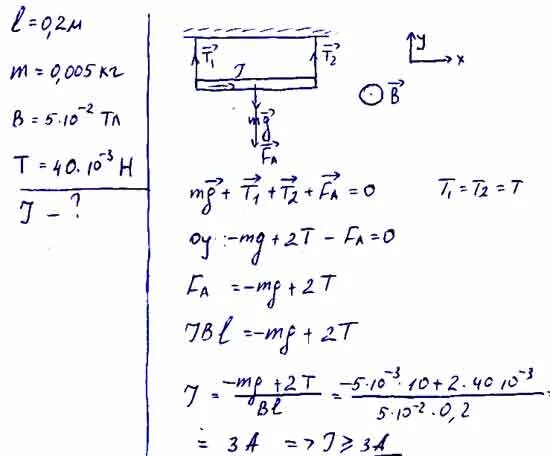 l = 0,2м
m = 0,005 кг
B = 5·10⁻² Тл
T = 40·10⁻³ Н
J – ?
T₁ J T₂
mg
F_A
y
x
B
mg + T₁ + T₂ + F_A = 0 T₁ = T₂ = T
oy : -mg + 2T - F_A = 0
F_A = -mg + 2T
JBl = -mg + 2T
J = (-mg + 2T)/(Bl) = (-5·10⁻³·10 + 2·40 10⁻³)/(5·10⁻²·0,2) =
= 3A => J ⩾ 3A